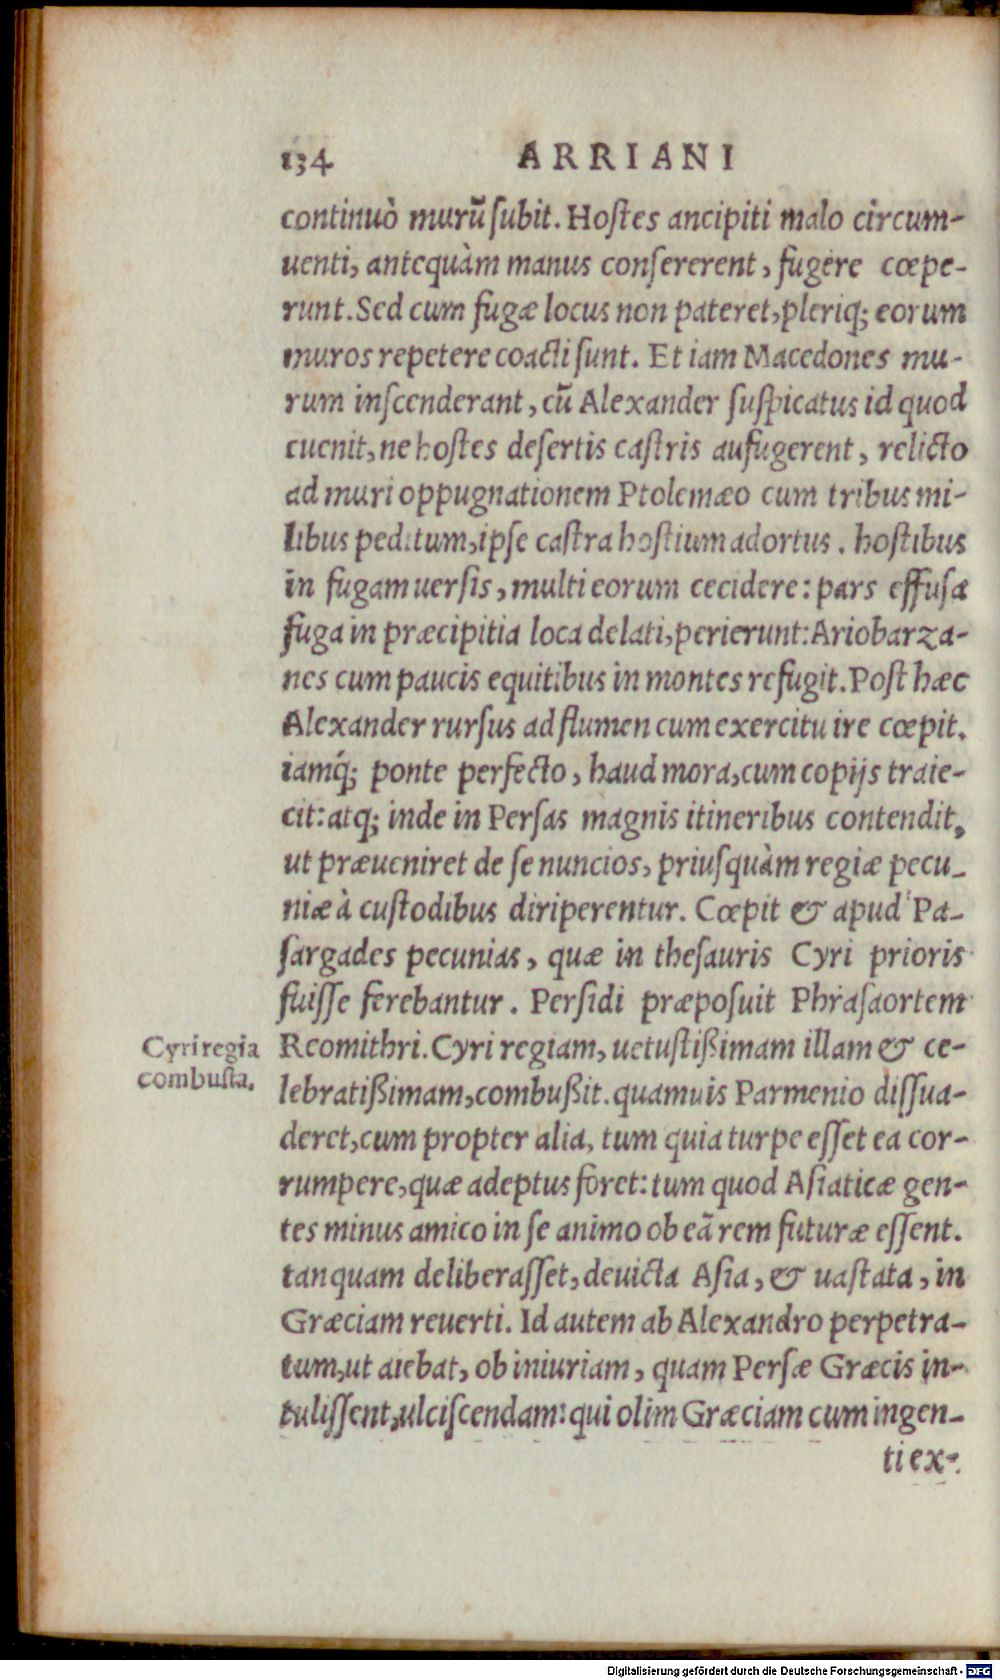 134 ARRIANI
continuò murũ subit. Hostes ancipiti malo circum-
uenti, antequàm manus consererent, fugere cœpe-
runt. Sed cum fugæ locus non pateret, pleriq; eorum
muros repetere coacti sunt. Et iam Macedones mu-
rum inscenderant, cũ Alexander suspicatus id quod
euenit, ne hostes desertis castris aufugerent, relicto
ad muri oppugnationem Ptolemæo cum tribus mi-
libus peditum, ipse castra hostium adortus. hostibus
in fugam uersis, multi eorum cecidere: pars effusæ
fuga in præcipitia loca delati, perierunt: Ariobarza-
nes cum paucis equitibus in montes refugit. Post hæc
Alexander rursus ad flumen cum exercitu ire cœpit.
iamq́; ponte perfecto, haud mora, cum copijs traie-
cit: atq; inde in Persas magnis itineribus contendit,
ut præueniret de se nuncios, priusquàm regiæ pecu-
niæ à custodibus diriperentur. Cœpit & apud Pa-
sargades pecunias, quæ in thesauris Cyri prioris
fuisse ferebantur. Persidi præposuit Phrasaortem
Cyri regia
combusta.
Reomithri. Cyri regiam, uetustißimam illam & ce-
lebratißimam, combußit. quamuis Parmenio dissua-
deret, cum propter alia, tum quia turpe esset ea cor-
rumpere, quæ adeptus foret: tum quod Asiaticæ gen-
tes minus amico in se animo ob eã rem futuræ essent.
tanquam deliberasset, deuicta Asia, & uastata, in
Græciam reuerti. Id autem ab Alexandro perpetra-
tum, ut aiebat, ob iniuriam, quam Persæ Græcis in-
tulissent, ulciscendam: qui olim Græciam cum ingen-
ti ex-
Digitalisierung gefördert durch die Deutsche Forschungsgemeinschaft - DFG